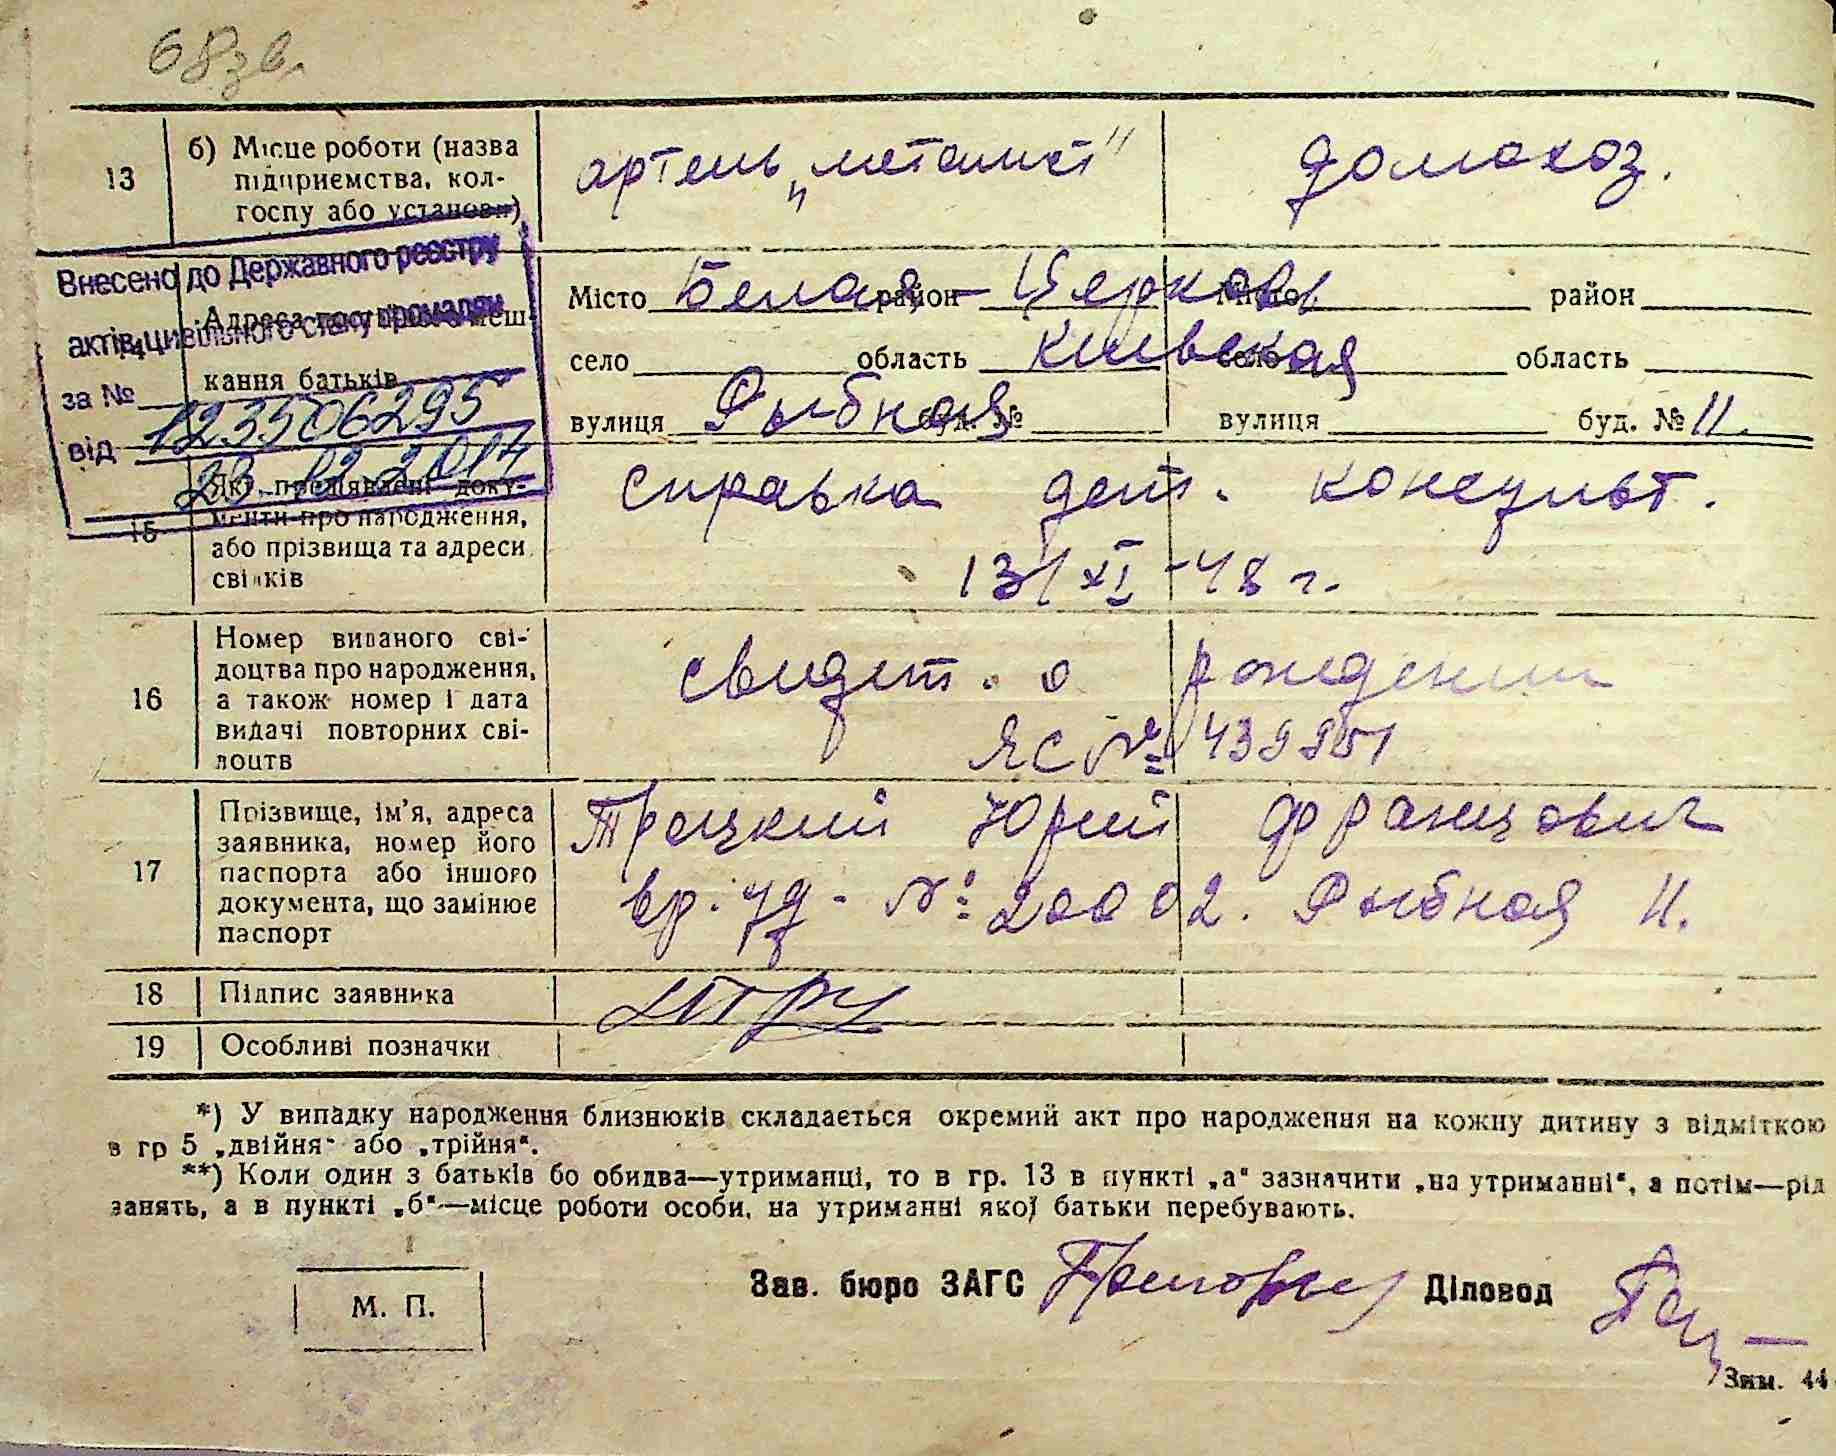 68зв.
13 б) Місце роботи (назва підприємства, колгоспу або установи) артель „металист" домохоз.
Внесено до Державного реєстру
актів цивільного стану громадян
за № 123506295
від 28.02.2017
14 Адреса постійного мешкання батьків
Місто Белая-Церковь район Місто район
село область Киевская село область
вулиця Рыбная буд. № вулиця буд. № 11.
15 Які пред'явлені документи про народження, або прізвища та адреси свідків
справка дет. консульт.
13/XI-48 г.
16 Номер виданого свідоцтва про народження, а також номер і дата видачі повторних свідоцтв
свидет. о рождении
ЯС №
17 Прізвище, ім'я, адреса заявника, номер його паспорта або іншого документа, що замінює паспорт
Троцкий Юрий Францович
вр. уд. № 20002. Рыбная 11.
18 Підпис заявника
19 Особливі позначки
*) У випадку народження близнюків складається окремий акт про народження на кожну дитину з відміткою
в гр 5 „двійня" або „трійня".
**) Коли один з батьків бо обидва—утриманці, то в гр. 13 в пункті „а" зазначити „на утриманні", а потім—рід
занять, а в пункті „б"—місце роботи особи, на утриманні якої батьки перебувають.
М. П.
Зав. бюро ЗАГС Діловод
Зам. 44